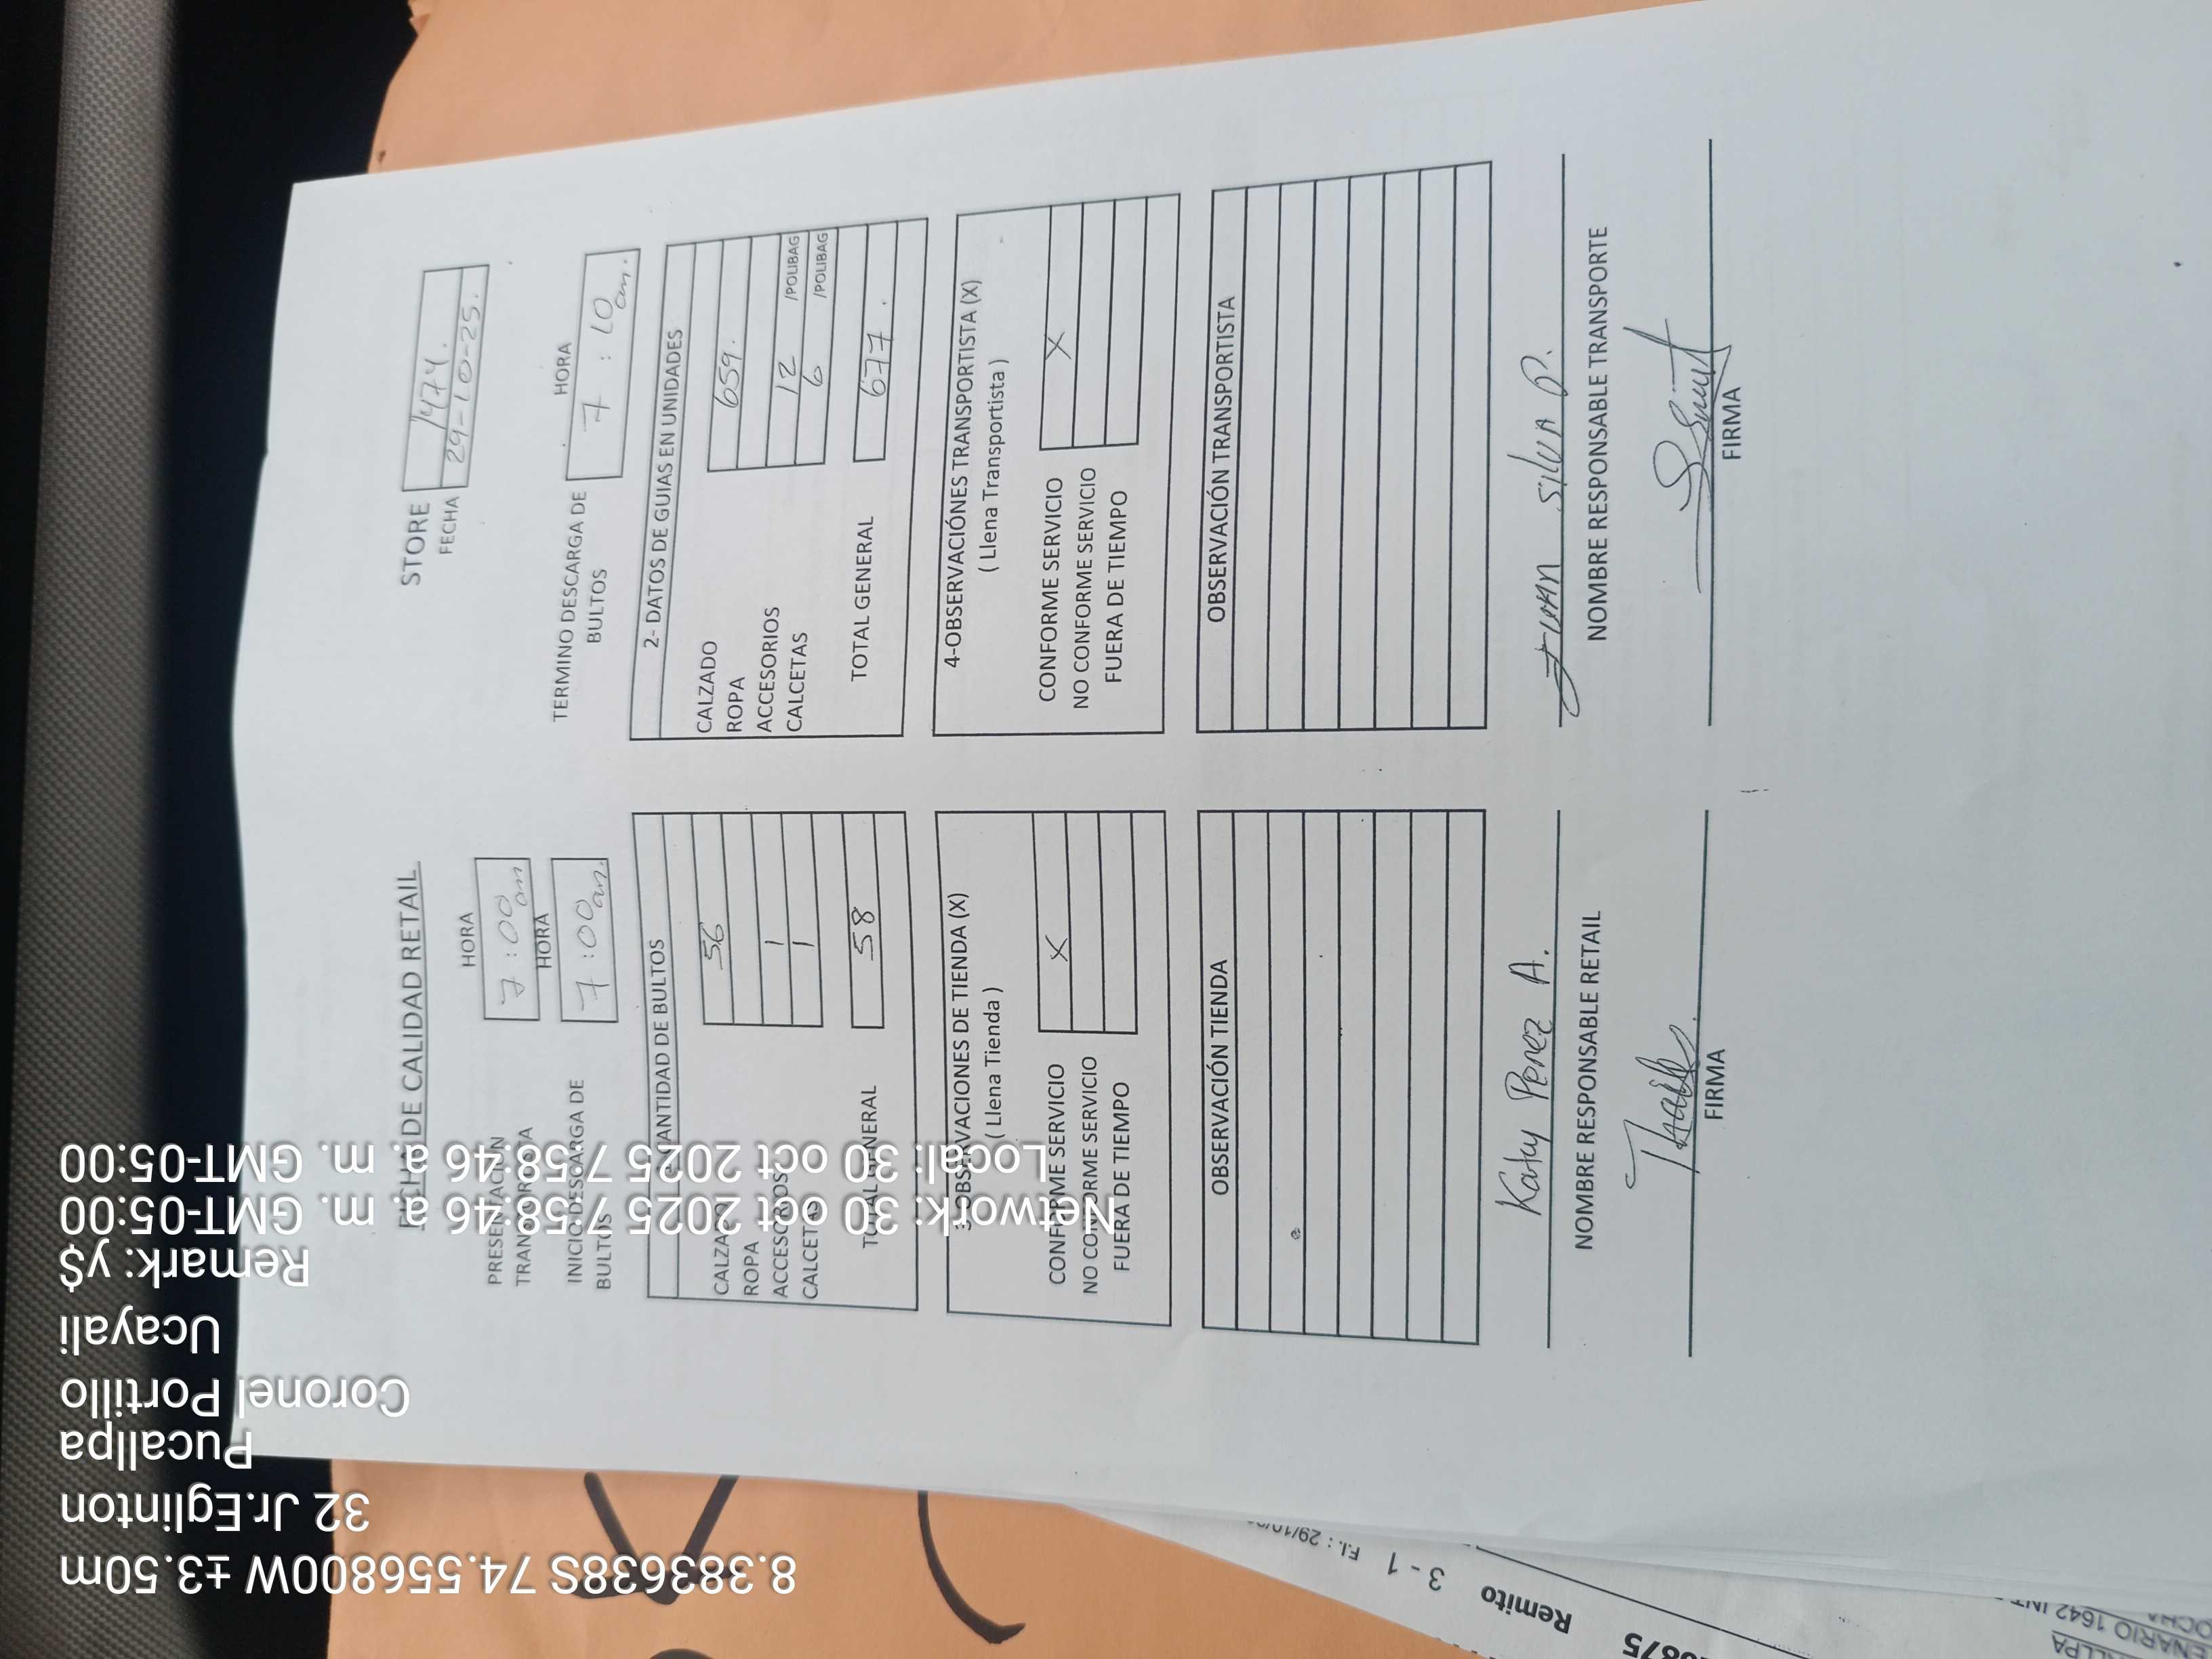 FICHA DE CALIDAD RETAIL
STORE 1474.
FECHA 29-10-25.
HORA
PRESENTACIÓN TRANSPORTISTA 7:00 am
HORA
INICIO DESCARGA DE BULTOS 7:00 am.
HORA
TERMINO DESCARGA DE BULTOS 7:10 am.
CANTIDAD DE BULTOS
CALZADO 56
ROPA
ACCESORIOS 1
CALCETAS 1
TOTAL GENERAL 58
2- DATOS DE GUIAS EN UNIDADES
CALZADO 659.
ROPA
ACCESORIOS 12 /POLIBAG
CALCETAS 6 /POLIBAG
TOTAL GENERAL 677.
3-OBSERVACIONES DE TIENDA (X)
( Llena Tienda )
CONFORME SERVICIO X
NO CONFORME SERVICIO
FUERA DE TIEMPO
4-OBSERVACIÓNES TRANSPORTISTA (X)
( Llena Transportista )
CONFORME SERVICIO X
NO CONFORME SERVICIO
FUERA DE TIEMPO
OBSERVACIÓN TIENDA
OBSERVACIÓN TRANSPORTISTA
Katy Perez A.
NOMBRE RESPONSABLE RETAIL
FIRMA
Juan Silva P.
NOMBRE RESPONSABLE TRANSPORTE
FIRMA
8.383638S 74.556800W ±3.50m
32 Jr.Eglinton
Pucallpa
Coronel Portillo
Ucayali
Remark: y$
Network: 30 oct 2025 7:58:46 a. m. GMT-05:00
Local: 30 oct 2025 7:58:46 a. m. GMT-05:00
Remito 3 - 1 F.I.: 29/10/